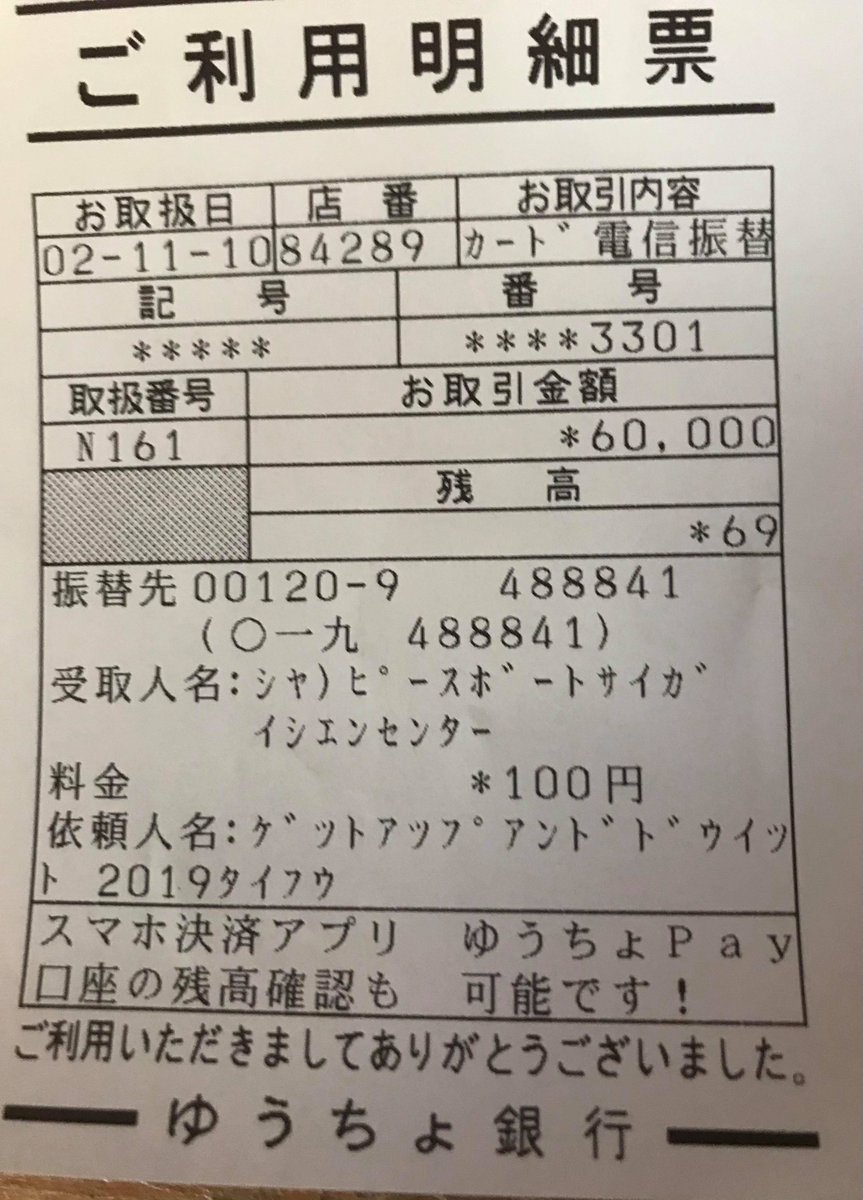 ご利用明細票
お取扱日 店番 お取引内容
02-11-10 84289 カード電信振替
記号 番号
***** ****3301
取扱番号 お取引金額
N161 *60,000
残高
*69
振替先 00120-9 488841
(〇一九 488841)
受取人名:シャ)ピースボートサイガ
イシエンセンター
料金 *100円
依頼人名:ゲットアップアンドドウイッ
ト 2019タイフウ
スマホ決済アプリ ゆうちょPay
口座の残高確認も 可能です!
ご利用いただきましてありがとうございました。
ゆうちょ銀行